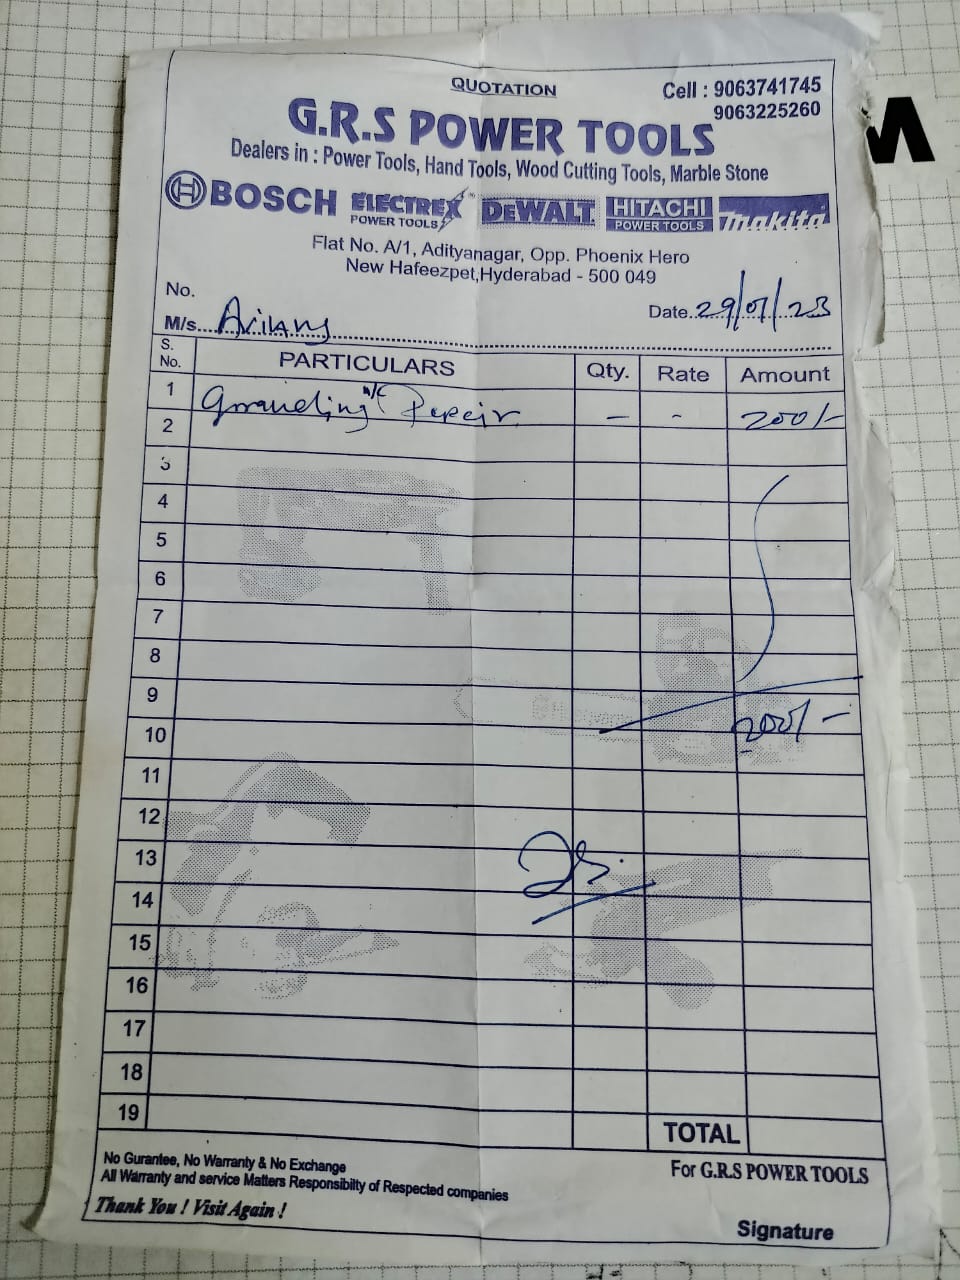 QUOTATION
Cell : 9063741745
9063225260
G.R.S POWER TOOLS
Dealers in : Power Tools, Hand Tools, Wood Cutting Tools, Marble Stone
BOSCH ELECTREX POWER TOOLS DEWALT HITACHI POWER TOOLS makita
Flat No. A/1, Adityanagar, Opp. Phoenix Hero
New Hafeezpet,Hyderabad - 500 049
No.
Date 29/07/23
M/s.
S. No. PARTICULARS Qty. Rate Amount
1 Grainding M/C Repair - - 200/-
2
3
4
5
6
7
8
9
200/-
10
11
12
13
14
15
16
17
18
19
TOTAL
No Gurantee, No Warranty & No Exchange
For G.R.S POWER TOOLS
All Warranty and service Matters Responsibilty of Respected companies
Thank You ! Visit Again !
Signature